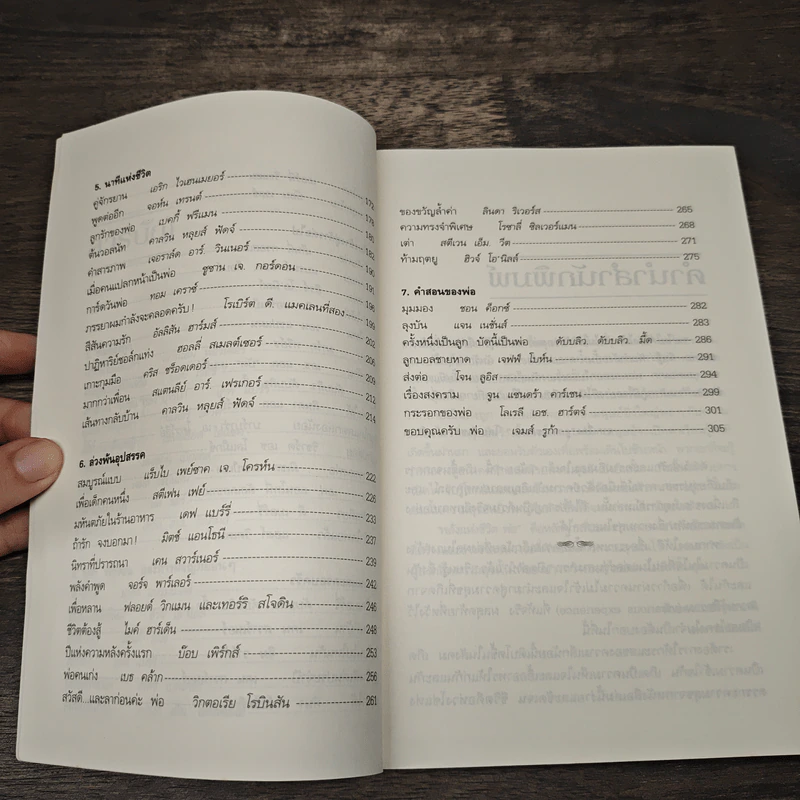 5. นาทีแห่งชีวิต
คู่จักรยาน เอริก ไวเฮนเมยอร์ 172
พูดต่ออีก จอห์น เทรนต์ 178
ลูกรักของพ่อ เบคกี้ ฟรีแมน 181
ต้นวอลนัท คาลวิน หลุยส์ ฟัดจ์ 187
คำสารภาพ เจอราล์ด อาร์. วินเนอร์ 190
เมื่อคนแปลกหน้าเป็นพ่อ ซูซาน เจ. กอร์ดอน 191
การ์ดวันพ่อ ทอม เคราซ์ 196
ภรรยาผมกำลังจะคลอดครับ! โรเบิร์ต ดี. แมคเลนที่สอง 199
สีสันความรัก อัลลิสัน ฮาร์มส์ 202
ปาฏิหาริย์ชอล์กแท่ง ฮอลลี่ สเมลต์เซอร์ 206
เกาะกุมมือ คริส ชร็อดเดอร์ 209
มากกว่าเพื่อน สแตนลีย์ อาร์. เฟรเกอร์ 212
เส้นทางกลับบ้าน คาลวิน หลุยส์ ฟัดจ์ 214
6. ล่วงพ้นอุปสรรค
สมบูรณ์แบบ แร็บไบ เพย์ซาค เจ. โครห์น 222
เพื่อเด็กคนหนึ่ง สตีเฟน เฟย์ 226
มหันตภัยในร้านอาหาร เดฟ แบร์รี่ 233
ถ้ารัก จงบอกมา! มิตช์ แอนโธนี 237
นิทราที่ปรารถนา เคน สวาร์เนอร์ 239
พลังคำพูด จอร์จ พาร์เลอร์ 242
เพื่อหลาน ฟลอยด์ วิกแมน และเทอร์รี สโจดิน 246
ชีวิตต้องสู้ ไมค์ ฮาร์เด็น 248
ปีแห่งความหลังครั้งแรก บ๊อบ เพิร์กส์ 253
พ่อคนเก่ง เบธ คล้าก 256
สวัสดี...และลาก่อนค่ะ พ่อ วิกตอเรีย โรบินสัน 261
ของขวัญล้ำค่า ลินดา ริเวอร์ส 265
ความทรงจำพิเศษ โรซาลี ซิลเวอร์แมน 268
เต่า สตีเวน เอ็ม. วีต 271
ท้ามฤตยู ฮิวจ์ โอ'นีลล์ 275
7. คำสอนของพ่อ
มุมมอง ชอน ค็อกซ์ 282
ลุงบัน แจน เนชั่นส์ 283
ครั้งหนึ่งเป็นลูก บัดนี้เป็นพ่อ ดับบลิว. ดับบลิว. มี้ด 286
ลูกบอลชายหาด เจฟฟ์ โบห์น 291
ส่งต่อ โจน ลูอิส 294
เรื่องสงคราม จูน แซนดร้า คาร์เซน 299
กระรอกของพ่อ โลเรลี เอช. ฮาร์ตจ์ 301
ขอบคุณครับ พ่อ เจมส์ รูก้า 305